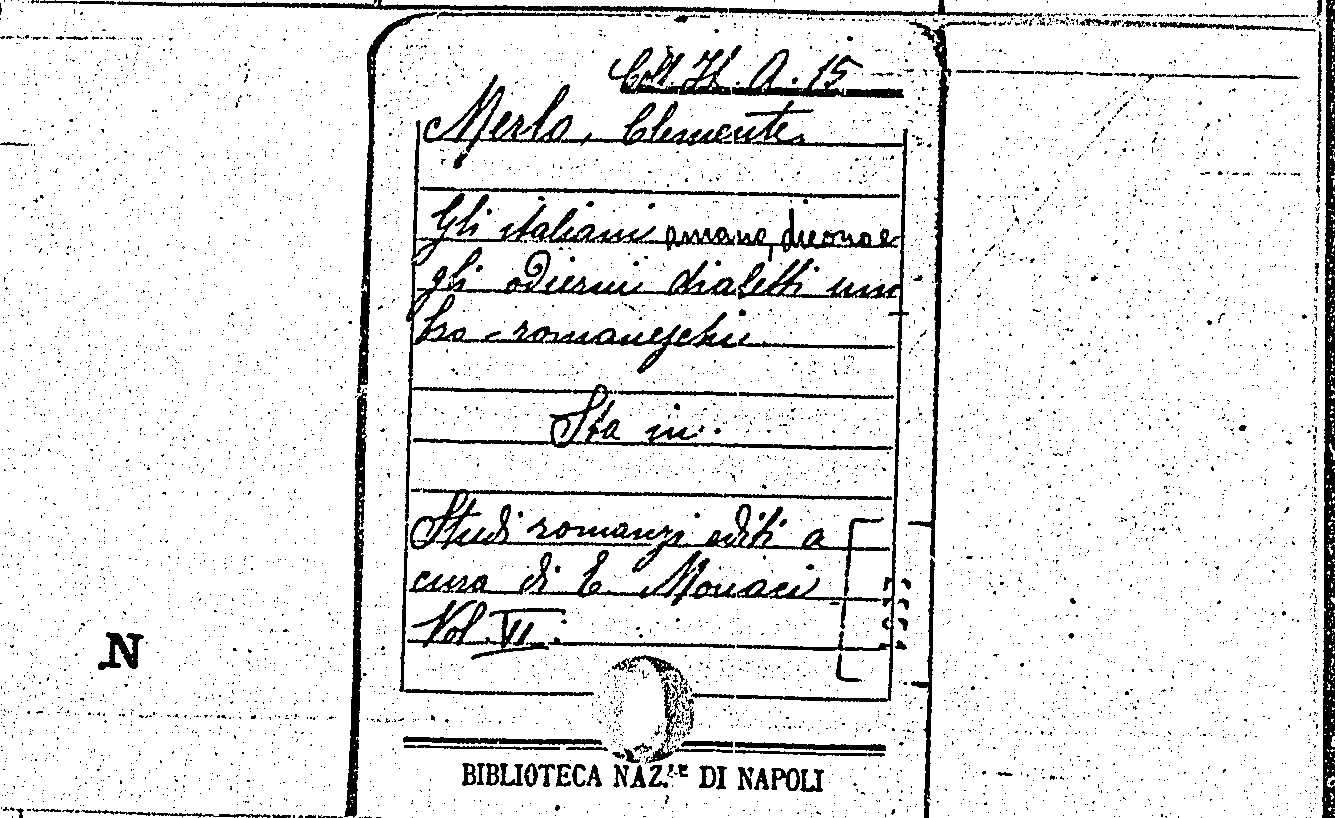 Coll. It. A. 15
Merlo, Clemente.
Gli italiani amano, dicono e
gli odierni dialetti um
bro-romaneschi
Sta in.
Studi romanzi editi a
cura di E. Monaci
Vol. VI.
N
BIBLIOTECA NAZ.LE DI NAPOLI